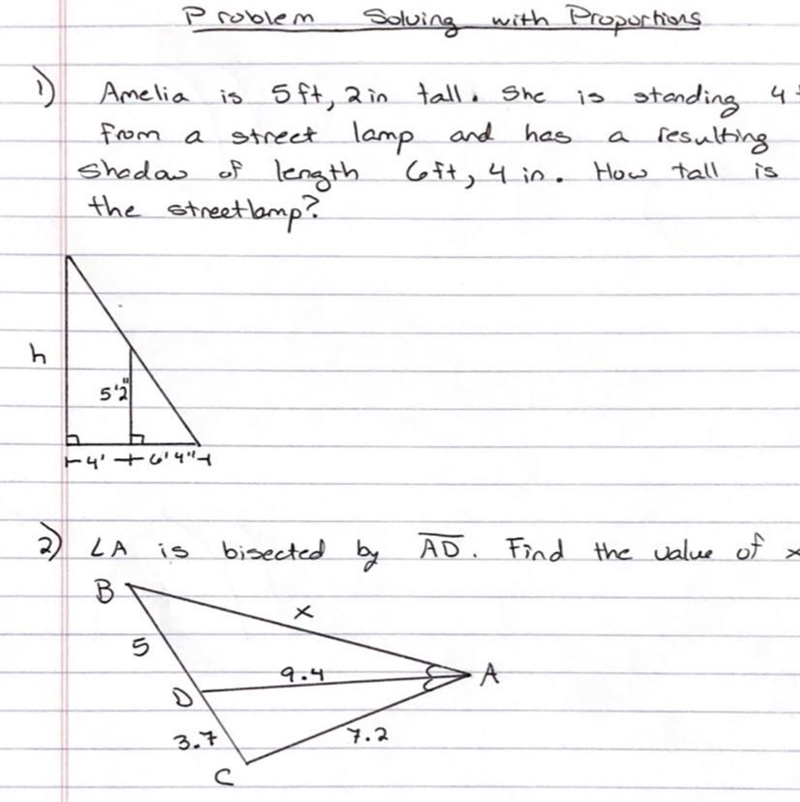 Problem Solving with Proportions
1) Amelia is 5ft, 2in tall. She is standing 4
from a street lamp and has a resulting
shadow of length 6ft, 4 in. How tall is
the streetlamp?
h
5'2"
4' 6'4"
2) ∠A is bisected by A̅D̅. Find the value of x
B
x
5
9.4
A
D
3.7
7.2
C